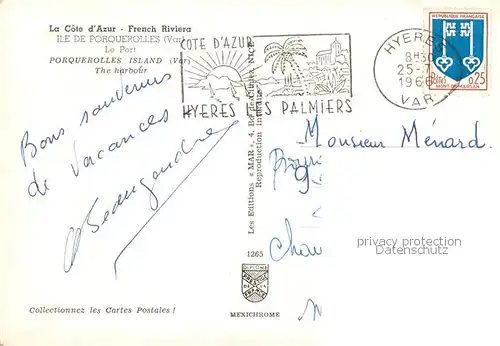 La Côte d'Azur - French Riviera
ILE DE PORQUEROLLES (Var)
Le Port
PORQUEROLLES ISLAND (Var)
The harbour
COTE D'AZUR
HYERES LES PALMIERS
HYERES
8H30
25-7
1966
VAR
REPUBLIQUE FRANÇAISE
0,25
MONT-DE-MARSAN
Bons souvenirs
de Vacances
Les Editions « MAR », 4, NICE
Reproduction interdite
Monsieur Ménard.
privacy protection
Datenschutz
1265
MEXICHROME
Collectionnez les Cartes Postales !